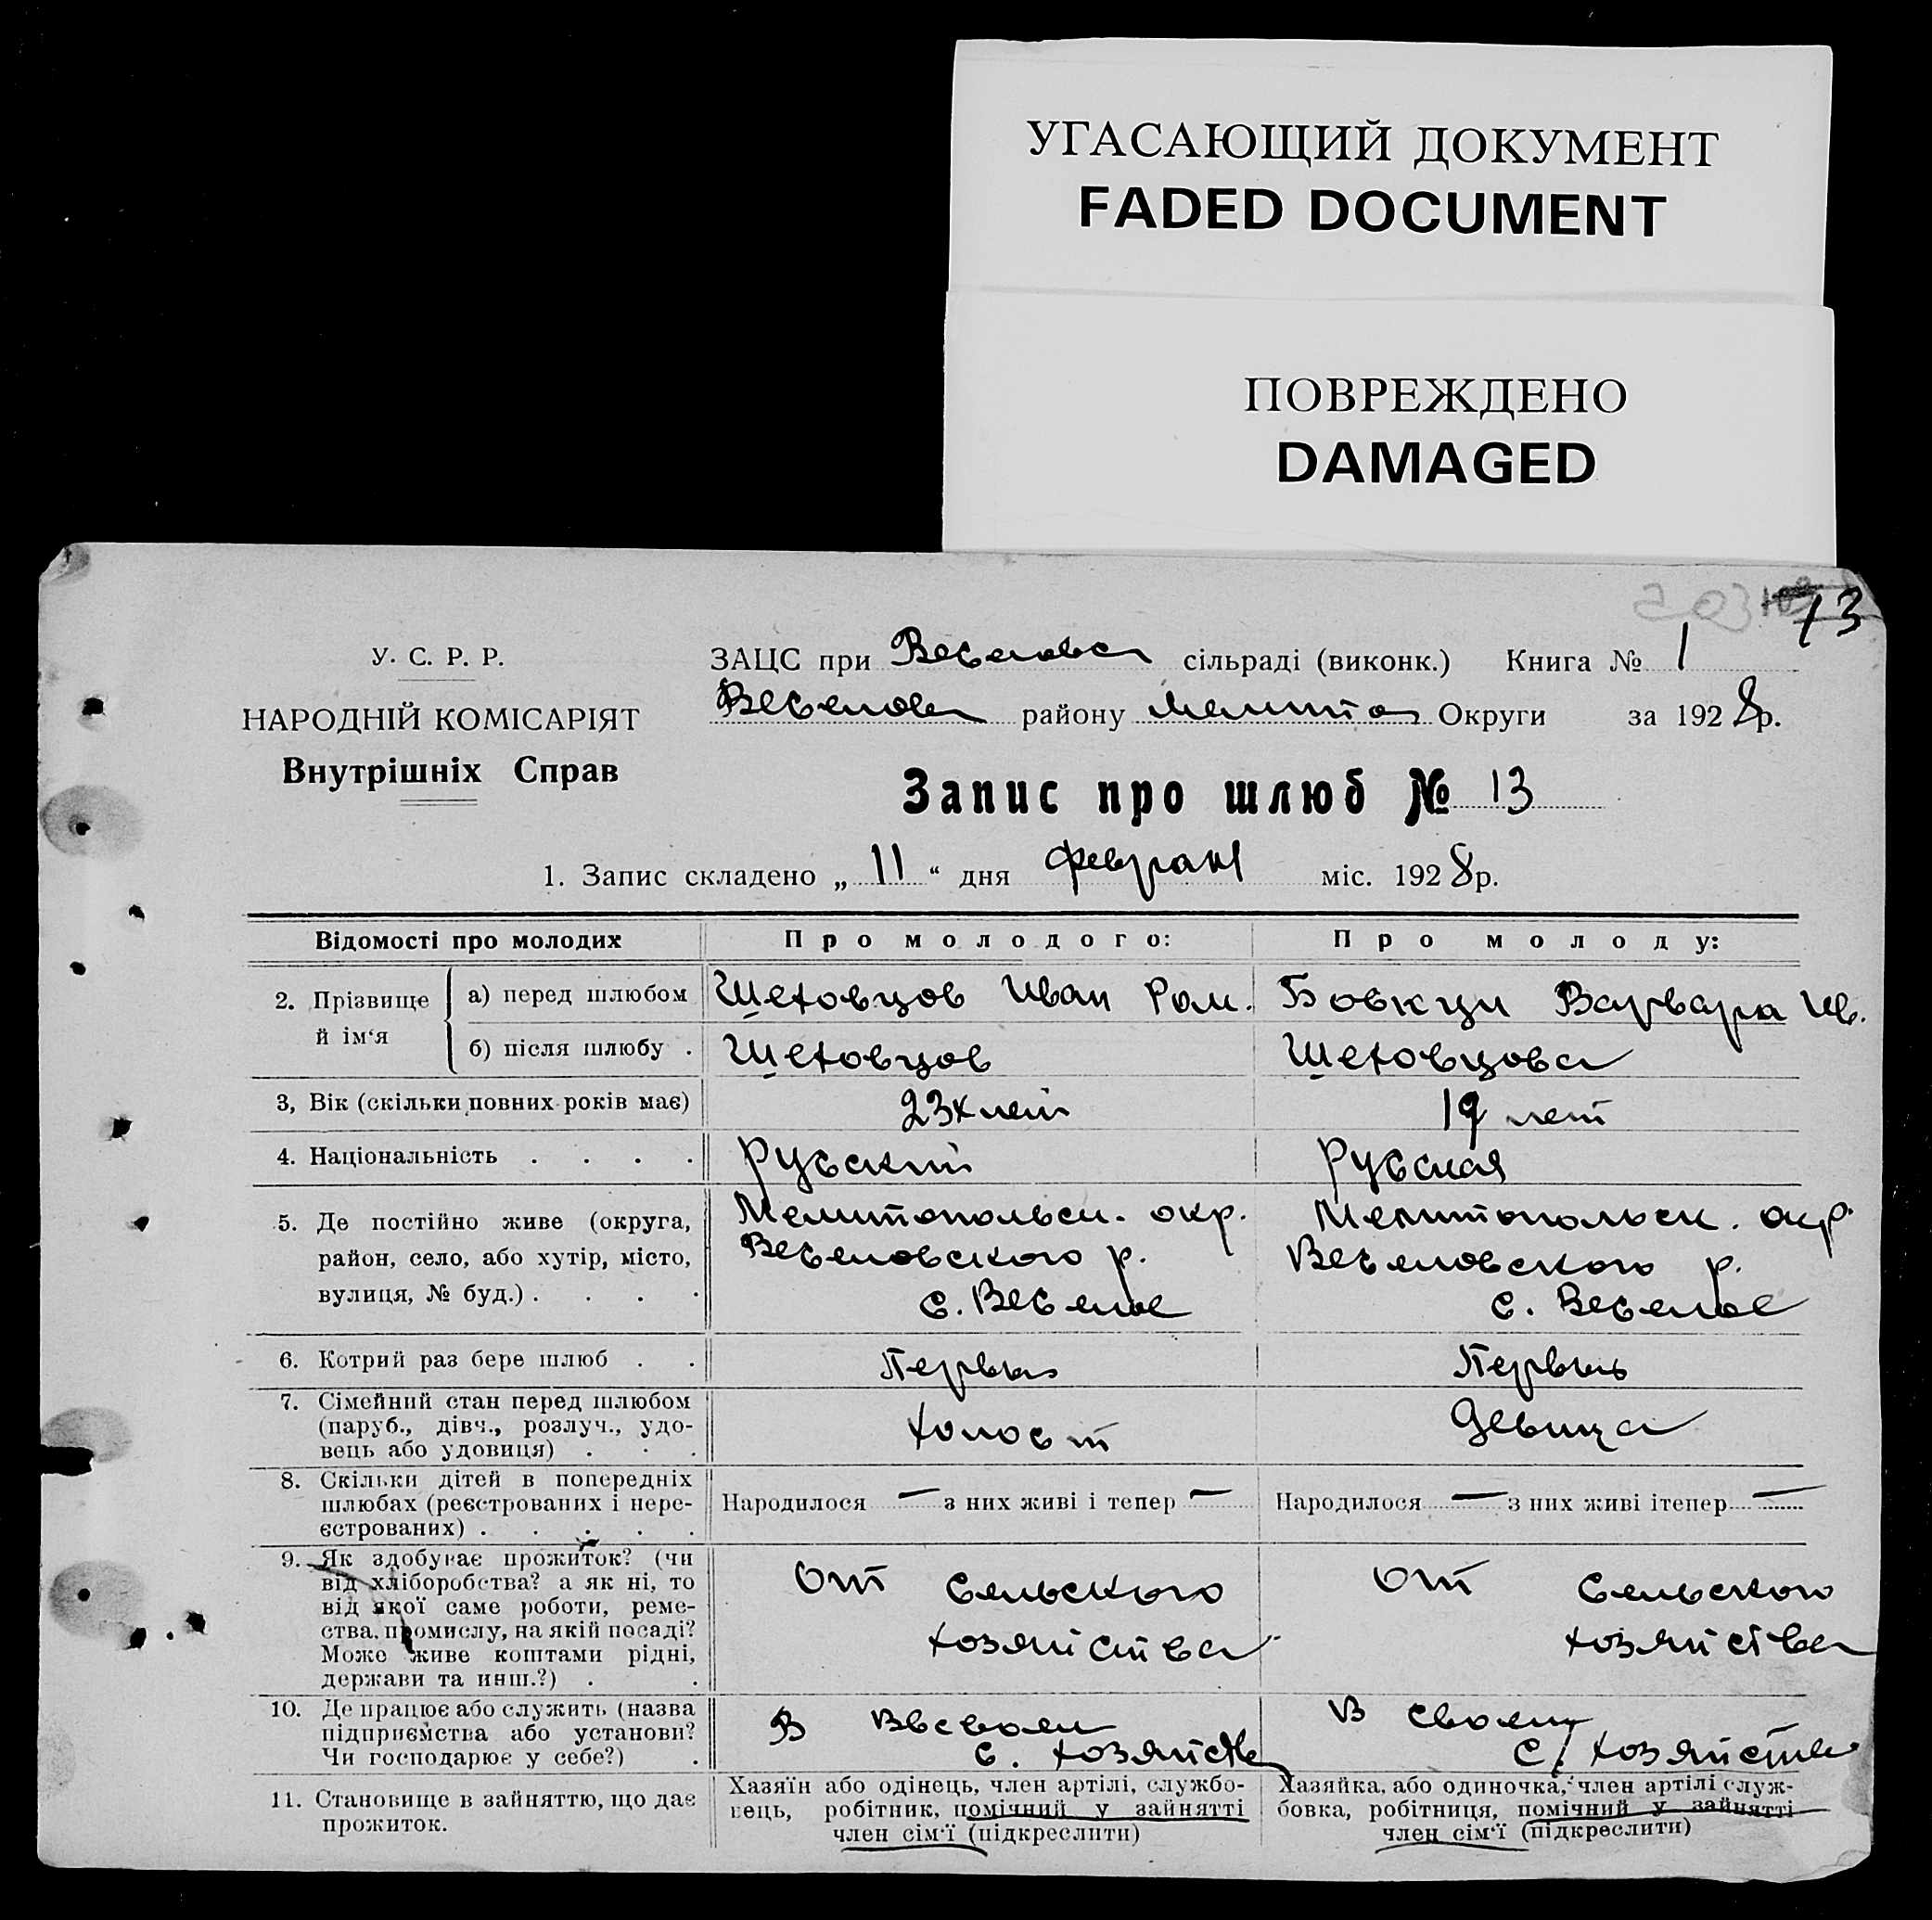 УГАСАЮЩИЙ ДОКУМЕНТ
FADED DOCUMENT
ПОВРЕЖДЕНО
DAMAGED
203 13
У. С. Р. Р.
НАРОДНІЙ КОМІСАРІЯТ
Внутрішніх Справ
ЗАЦС при Веселовск сільраді (виконк.) Книга № 1
Веселов району Мелитоп Округи за 1928 р.
Запис про шлюб № 13
1. Запис складено „ 11 “ дня февраля міс. 1928 р.
Відомості про молодих Про молодого: Про молоду:
2. Прізвище й ім‘я
а) перед шлюбом Шеховцов Иван Ром. Бовкун Варвара Ив.
б) після шлюбу . Шеховцов Шеховцова
3, Вік (скільки повних років має) 23х лет 19 лет
4. Національність . . . . русский русская
5. Де постійно живе (округа, район, село, або хутір, місто, вулиця, № буд.) . . . .
Мелитопольск. окр. Мелитопольск. окр.
Веселовского р. Веселовского р.
с. Веселое с. Веселое
6. Котрий раз бере шлюб . . Первый Первый
7. Сімейний стан перед шлюбом
(паруб., дівч., розлуч., удо-
вець або удовиця) . . . холост девица
8. Скільки дітей в попередніх
шлюбах (реєстрованих і нере-
єстрованих) . . . . .
Народилося — з них живі і тепер — Народилося — з них живі ітепер —
9. Як здобуває прожиток? (чи
від хліборобства? а як ні, то
від якої саме роботи, реме-
ства, промислу, на якій посаді?
Може живе коштами рідні,
держави та инш.?) . .
от сельского от сельского
хозяйства хозяйства
10. Де працює або служить (назва
підприємства або установи?
Чи господарює у себе?) .
В своем
с. хозяйстве
В своем
с. хозяйстве
11. Становище в зайняттю, що дає
прожиток.
Хазяїн або одінець, член артілі, службо-
вець, робітник, помічний у зайнятті
член сім‘ї (підкреслити)
Хазяйка, або одиночка, член артілі служ-
бовка, робітниця, помічний у зайнятті
член сім‘ї (підкреслити)